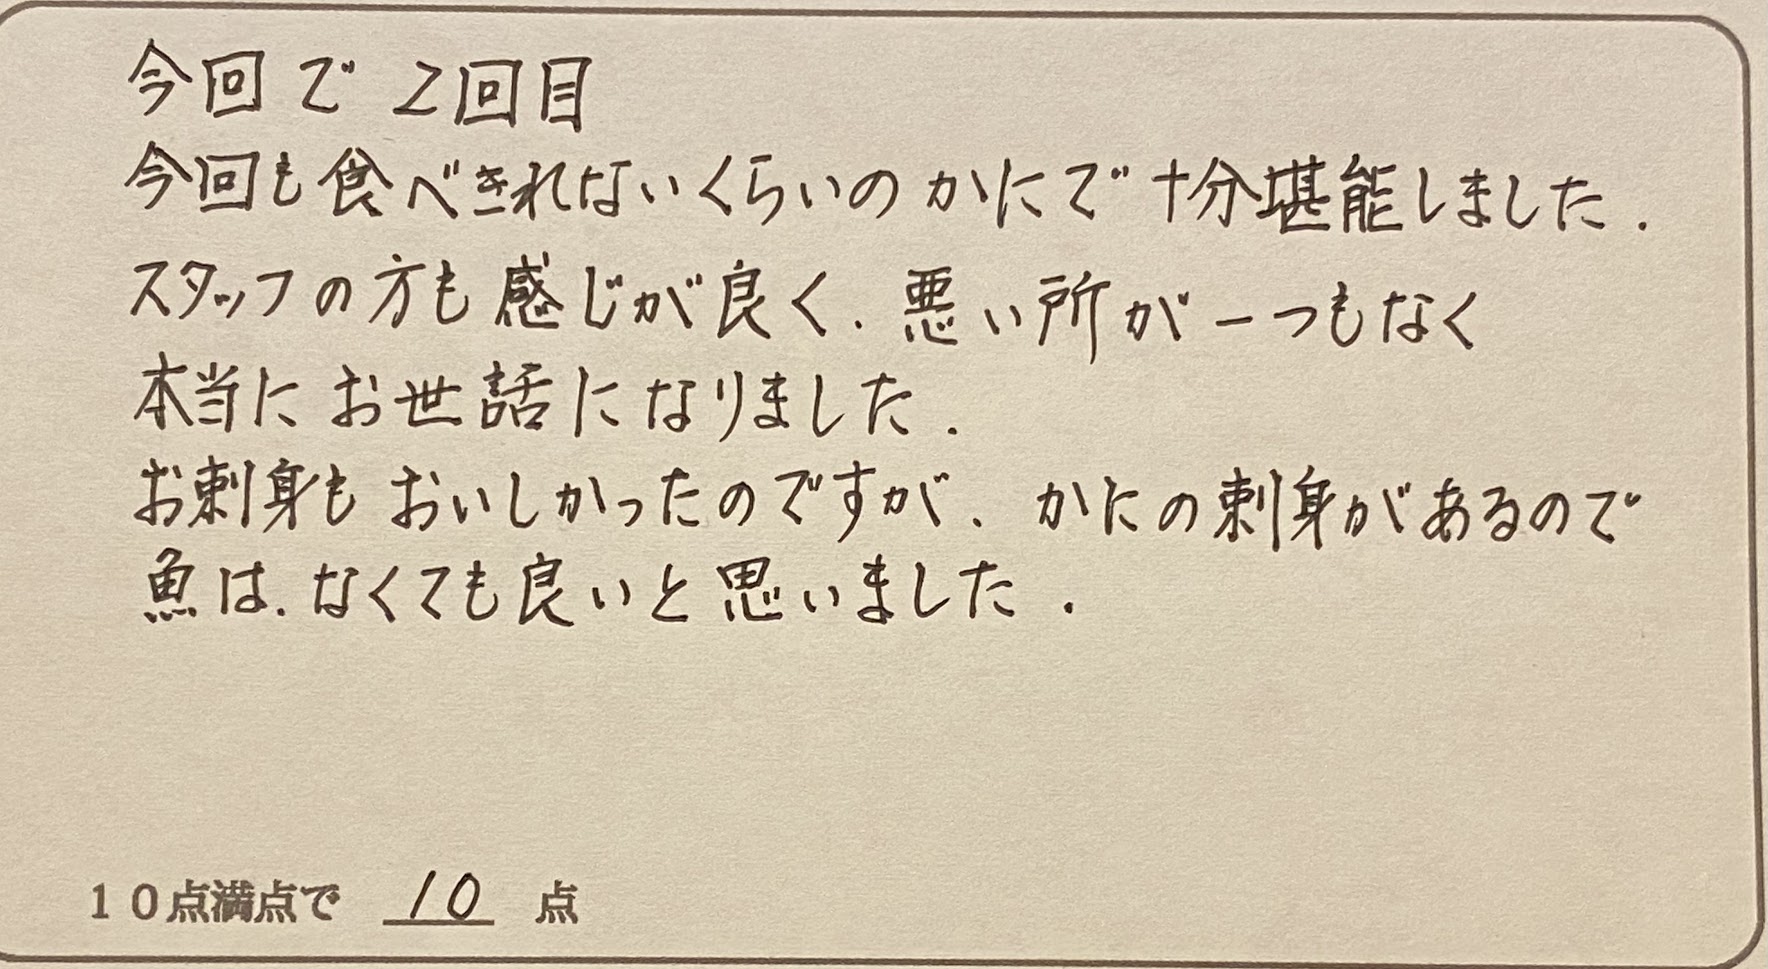 今回で 2回目
今回も食べきれないくらいのかにで十分堪能しました.
スタッフの方も感じが良く、悪い所が一つもなく
本当にお世話になりました.
お刺身もおいしかったのですが、かにの刺身があるので
魚は、なくても良いと思いました.
10点満点で 10 点